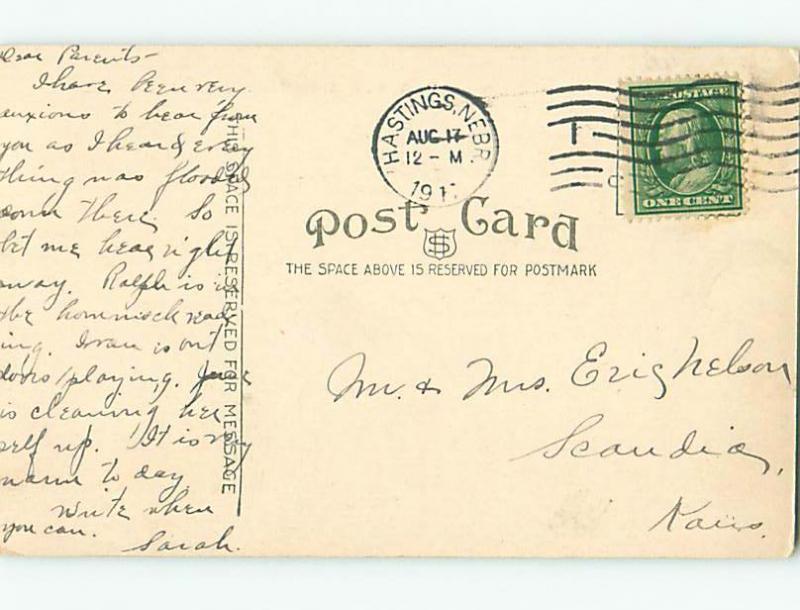 Dear Parents-
I have been very
anxious to hear from
you as I heard every
thing was flooded
down there. So
let me hear right
away. Ralph is in
the hommock read
ing. is out
doors playing.
is cleaning her
self up. It is very
warm to day
write when
you can.
Sarah.
THIS SPACE IS RESERVED FOR MESSAGE
HASTINGS, NEBR.
AUG 17
12 - M
191
U.S. POSTAGE
ONE CENT
Post Card
THE SPACE ABOVE IS RESERVED FOR POSTMARK
Mr. & Mrs. Eric Nelson
Scandia,
Kans.